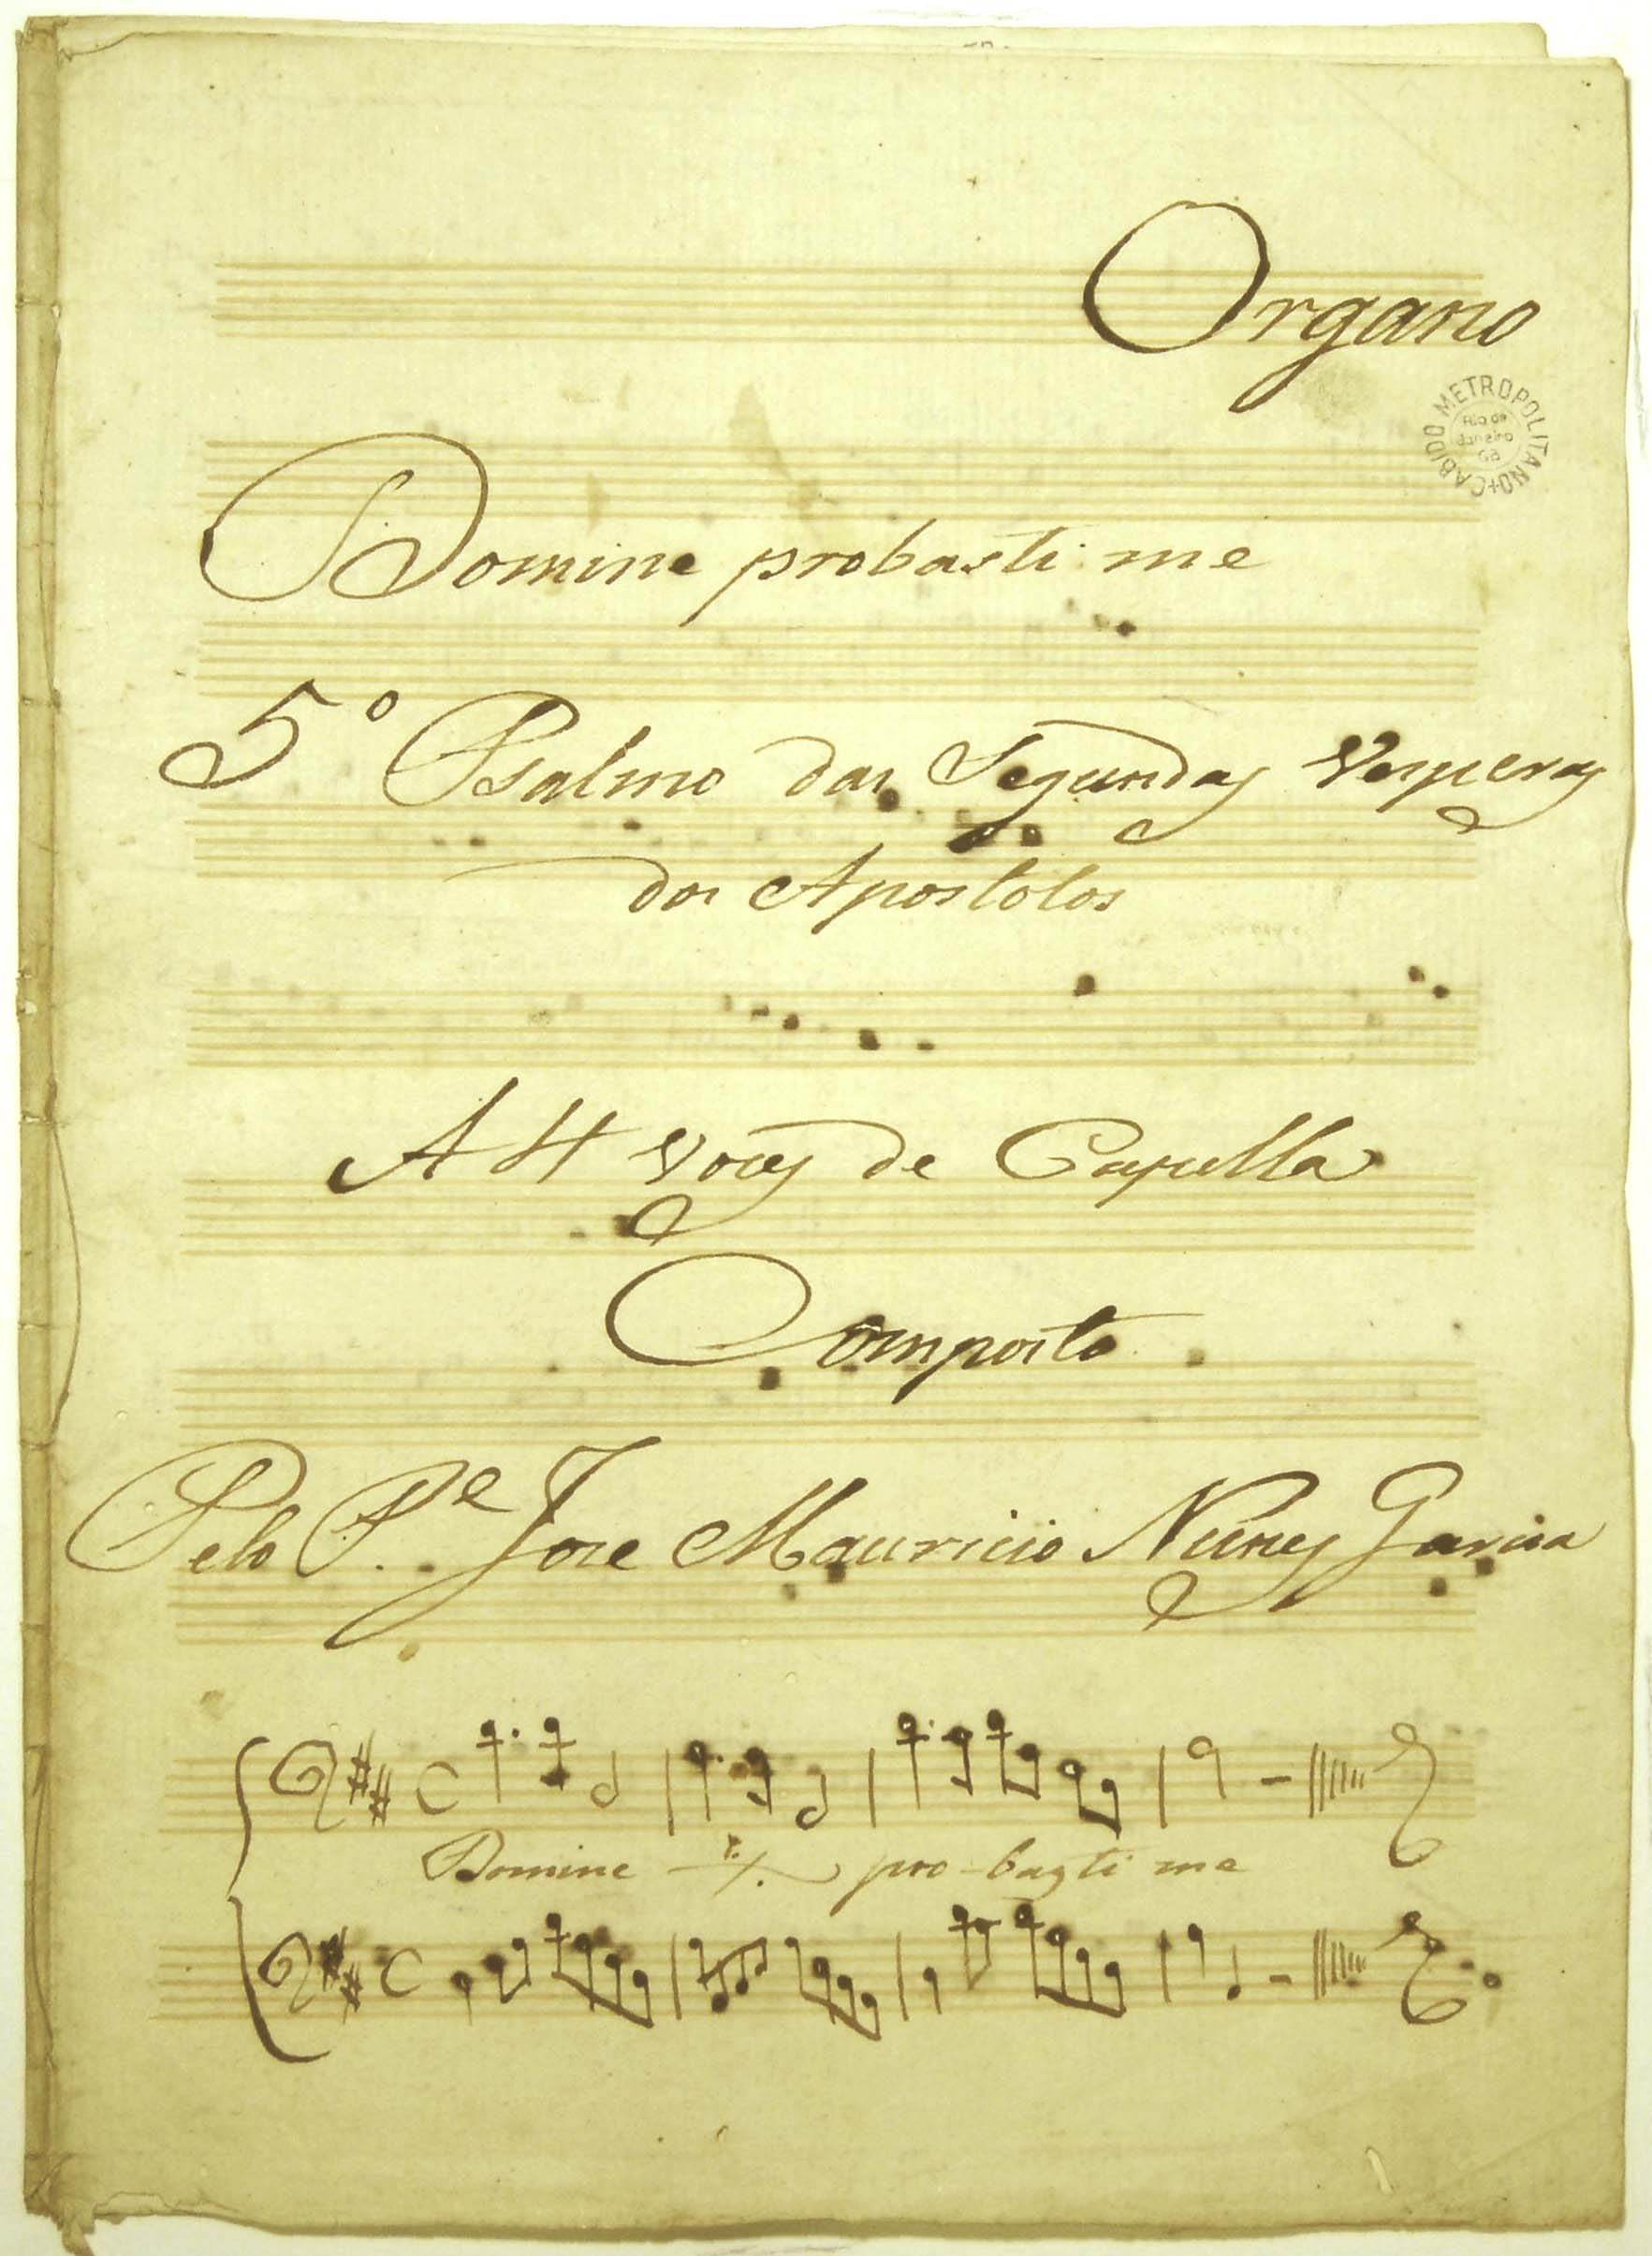 Organo
CABIDO METROPOLITANO
Rio de
Janeiro
GB
Domine probasti me
5º Psalmo das Segundas Vesperas
dos Apostolos
A 4 Vozes de Capella
Composto
Pelo P.e Joze Mauricio Nunes Garcia
Domine ·/. pro-basti me